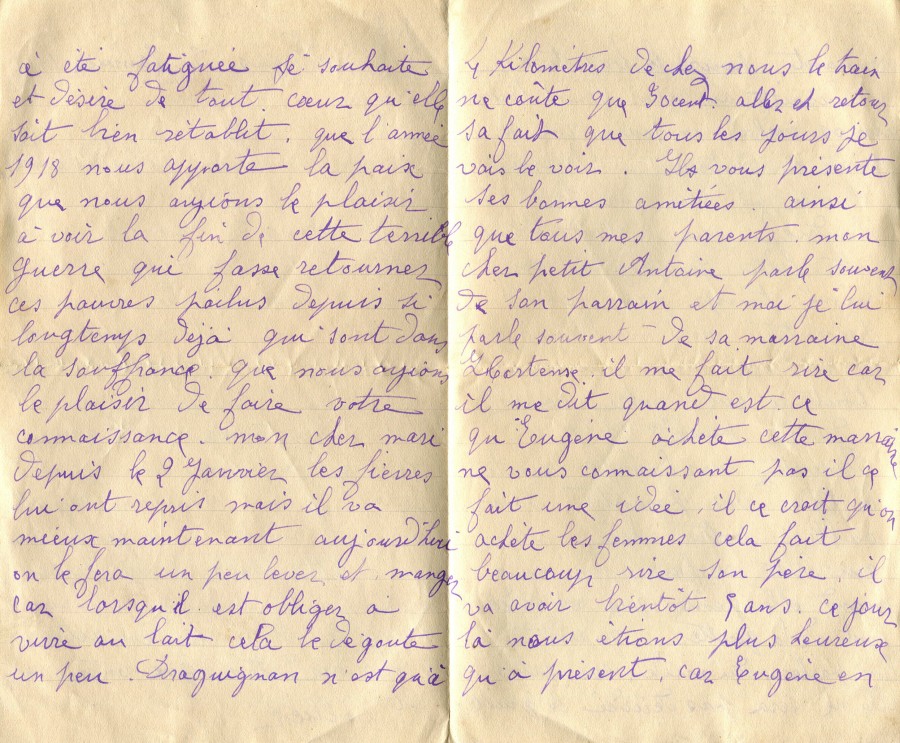 a été fatiguée Je souhaite
et désire de tout cœur qu'elle
soit bien rétablit. que l'année
1918 nous apporte la paix
que nous ayions le plaisir
à voir la fin de cette terrible
guerre qui fasse retourner
ces pauvres poilus depuis si
longtemps déjà qui sont dans
la souffrance. que nous ayions
le plaisir de faire votre
connaissance. mon cher mari
depuis le 2 Janvier les fievres
lui ont repris mais il va
mieux maintenant aujourd'hui
on le fera un peu lever et manger
car lorsqu'il est obliger à
vivre au lait cela le dégoute
un peu. Draguignan n'est qu'à
4 Kilomètres de chez nous le train
ne coûte que 30cent. aller et retour
sa fait que tous les jours je
vais le voir. Il vous présente
ses bonnes amitiées. ainsi
que tous mes parents. mon
cher petit Antoine parle souvent
de son parrain et moi je lui
parle souvent de sa marraine
Hortense. il me fait rire car
il me dit quand est ce
qu'Eugène achète cette marraine
ne vous connaissant pas il ce
fait une idée, il ce croit qu'on
achéte les femmes cela fait
beaucoup rire son père. il
va avoir bientôt 5 ans. ce jour
là nous étions plus heureux
qu'à présent. car Eugène en